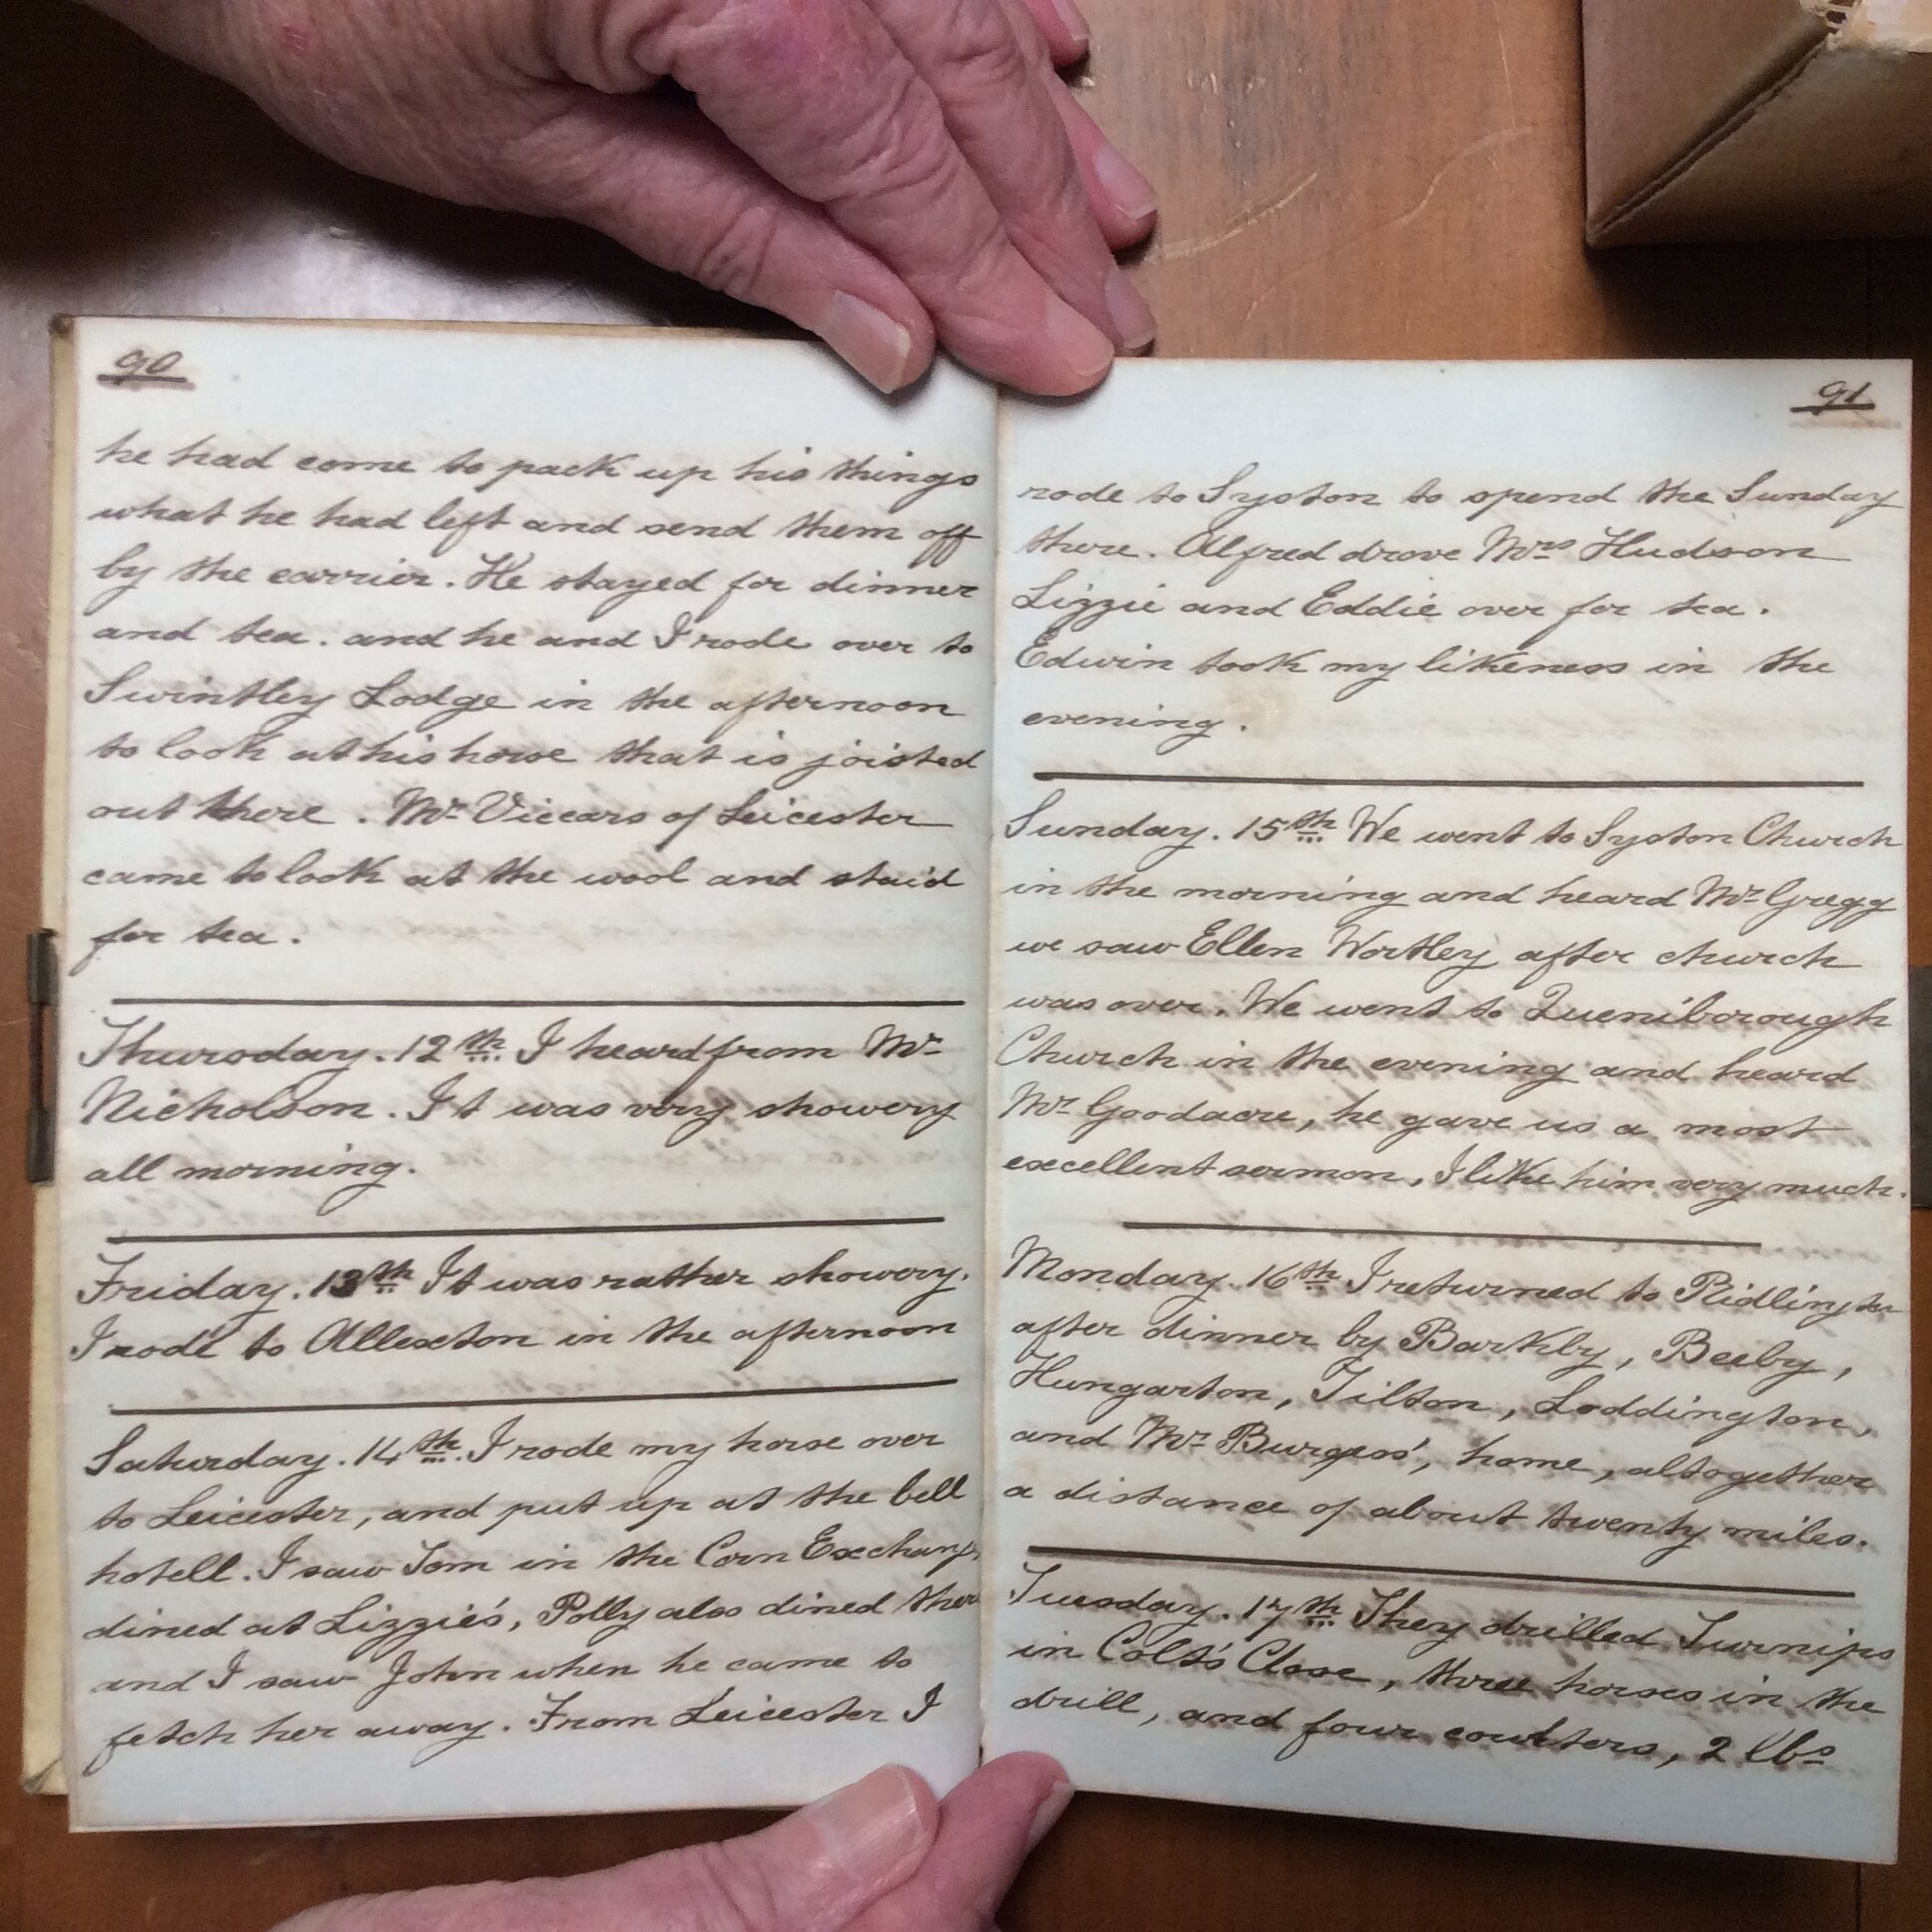 90
he had come to pack up his things
what he had left and send them off
by the carrier. He stayed for dinner
and tea. and he and I rode over to
Swintley Lodge in the afternoon
to look at his horse that is joisted
out there. Mr Viccars of Leicester
came to look at the wool and staid
for tea.
Thursday. 12th I heard from Mr
Nicholson. It was very showery
all morning.
Friday. 13th It was rather showery.
I rode to Allexton in the afternoon
Saturday. 14th. I rode my horse over
to Leicester, and put up at the bell
hotell. I saw Tom in the Corn Exchange
dined at Lizzie's, Polly also dined there
and I saw John when he came to
fetch her away. From Leicester I
91
rode to Syston to spend the Sunday
there. Alfred drove Mrs Hudson
Lizzie and Eddie over for tea.
Edwin took my likeness in the
evening.
Sunday. 15th We went to Syston Church
in the morning and heard Mr Gregg
we saw Ellen Wortley after church
was over. We went to Queniborough
Church in the evening and heard
Mr Goodacre, he gave us a most
excellent sermon, I like him very much.
Monday. 16th I returned to Ridlington
after dinner by Barkby, Beeby,
Hungarton, Tilton, Loddington,
and Mr Burgess', home, altogether
a distance of about twenty miles.
Tuesday. 17th They drilled Turnips
in Colt's Close, three horses in the
drill, and four coulters, 2 lbs